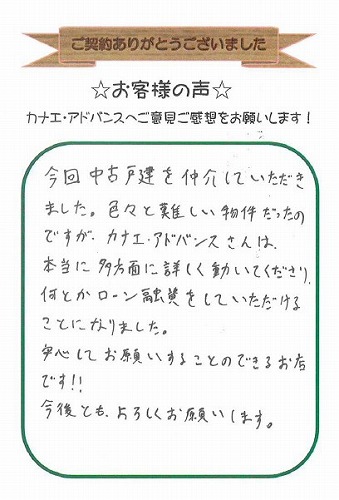 ご契約ありがとうございました
☆お客様の声☆
カナエ・アドバンスへご意見ご感想をお願いします！
今回中古戸建を仲介していただき
ました。色々と難しい物件だったの
ですが、カナエ・アドバンスさんは、
本当に多方面に詳しく動いてくださり、
何とかローン融資をしていただける
ことになりました。
安心してお願いすることのできるお店
です!!
今後とも、よろしくお願いします。